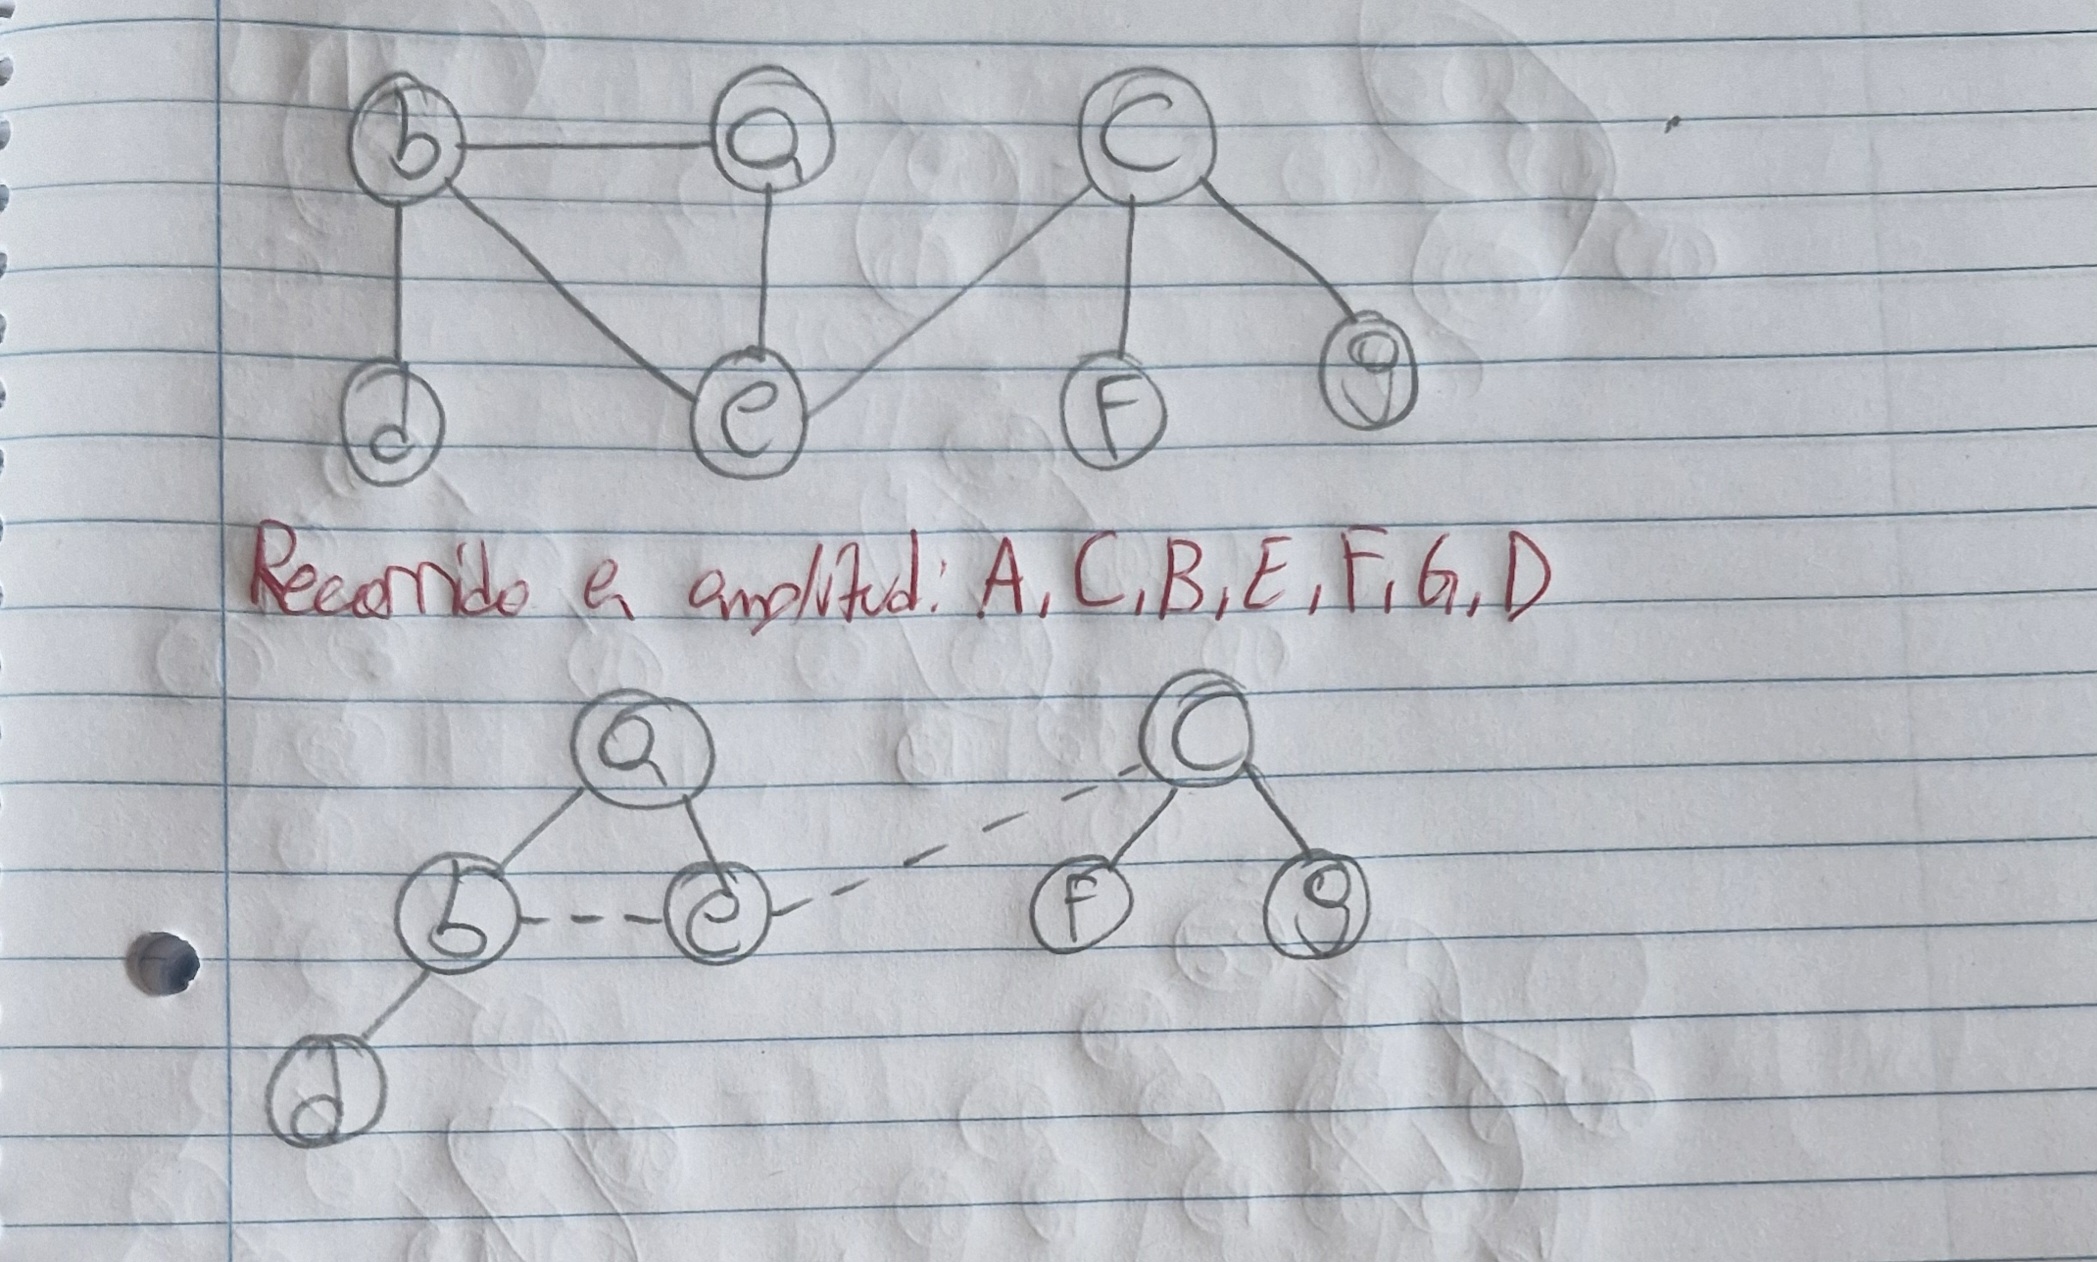 b a C
d e F g
Recorrido en amplitud: A, C, B, E, F, G, D
a C
b e F g
d